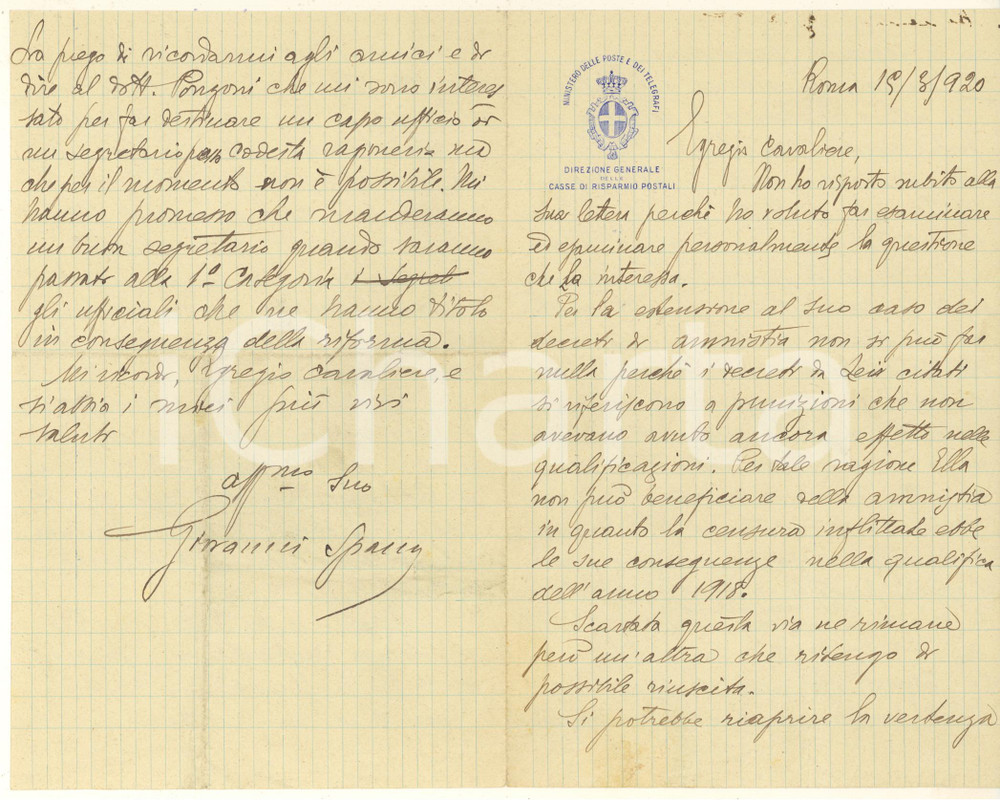 MINISTERO DELLE POSTE E DEI TELEGRAFI
DIREZIONE GENERALE
DELLE
CASSE DI RISPARMIO POSTALI
Roma 15/3/920
Egregio Cavaliere,
Non ho risposto subito alla
sua lettera perchè ho voluto far esaminare
ed esaminare personalmente la questione
che La interessa.
Per la estensione al suo caso dei
decreti di amnistia non si può far
nulla perchè i decreti da Lei citati
si riferiscono a punizioni che non
avevano avuto ancora effetto nelle
qualificazioni. Per tale ragione Ella
non può beneficiare della amnistia
in quanto la censura inflittale ebbe
le sue conseguenze nella qualifica
dell'anno 1918.
Scartata questa via ne rimane
però un'altra che ritengo di
possibile riuscita.
Si potrebbe riaprire la vertenza
La prego di ricordarmi agli amici e di
dire al dott. Pongoni che mi sono interes
sato per far destinare un capo ufficio o
un segretario codesta ragioneria ma
che per il momento non è possibile. Mi
hanno promesso che manderanno
un buon segretario quando saranno
passati alla 1a Categoria i Segret
gli ufficiali che ne hanno titolo
in conseguenza della riforma.
Mi ricordi, Egregio Cavaliere, e
si abbia i miei più vivi
saluti
affmo Suo
Giovanni
iCharta